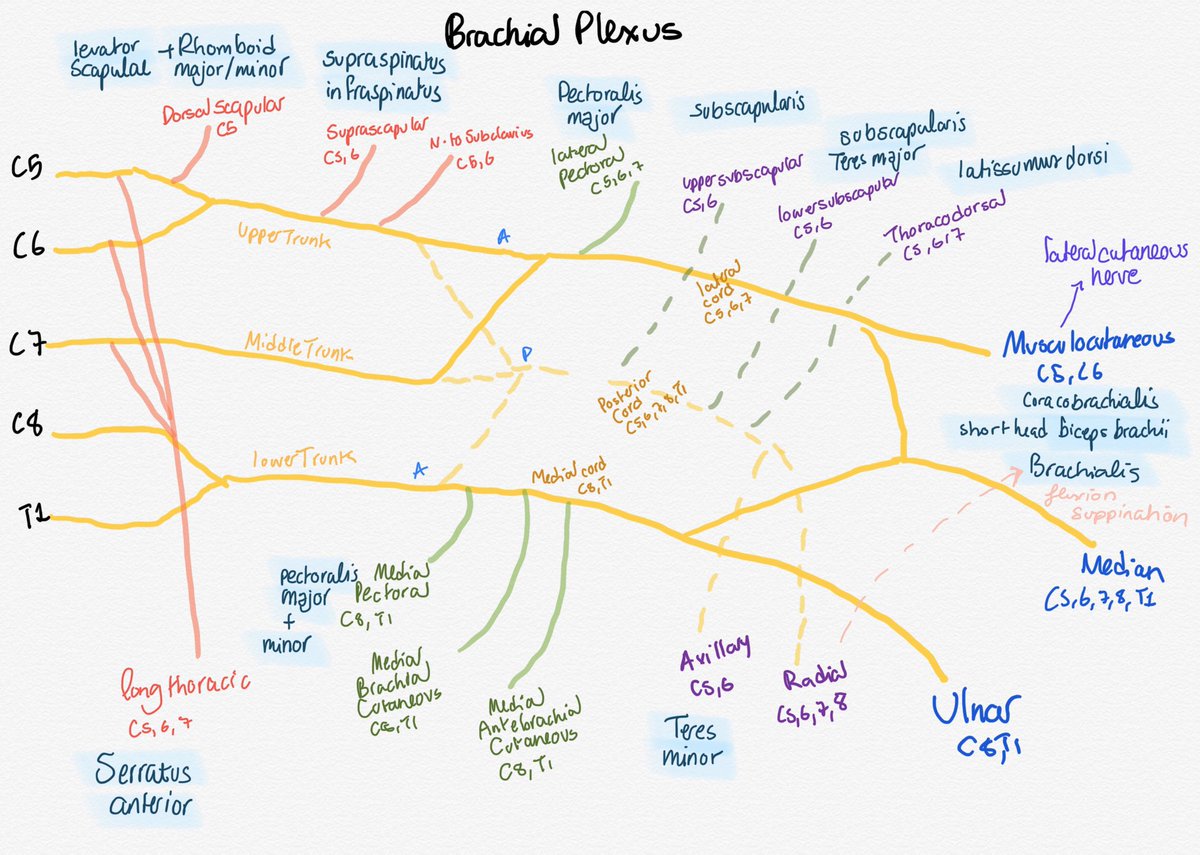 Brachial Plexus
levator
scapulae
+ Rhomboid
major/minor
Supraspinatus
infraspinatus
Dorsal scapular
C5
Suprascapular
C5,6
N. to Subclavius
C5,6
Pectoralis
major
lateral
Pectoral
C5,6,7
subscapularis
upper subscapular
C5,6
subscapularis
Teres major
lower subscapular
C5,6
latissumus dorsi
Thoracodorsal
C5,6,7
C5
C6
C7
C8
T1
Upper Trunk
Middle Trunk
lower Trunk
A
P
A
lateral
cord
C5,6,7
Posterior
Cord
C5,6,7,8,T1
Medial cord
C8,T1
lateral cutaneous
nerve
Musculocutaneous
C5,C6
coracobrachialis
short head biceps brachii
Brachialis
flexion
suppination
Median
C5,6,7,8,T1
Ulnar
C8,T1
pectoralis
major
+
minor
Medial
Pectoral
C8,T1
Medial
Brachial
Cutaneous
C8,T1
Medial
Antebrachial
Cutaneous
C8,T1
Axillary
C5,6
Teres
minor
Radial
C5,6,7,8
long thoracic
C5,6,7
Serratus
anterior